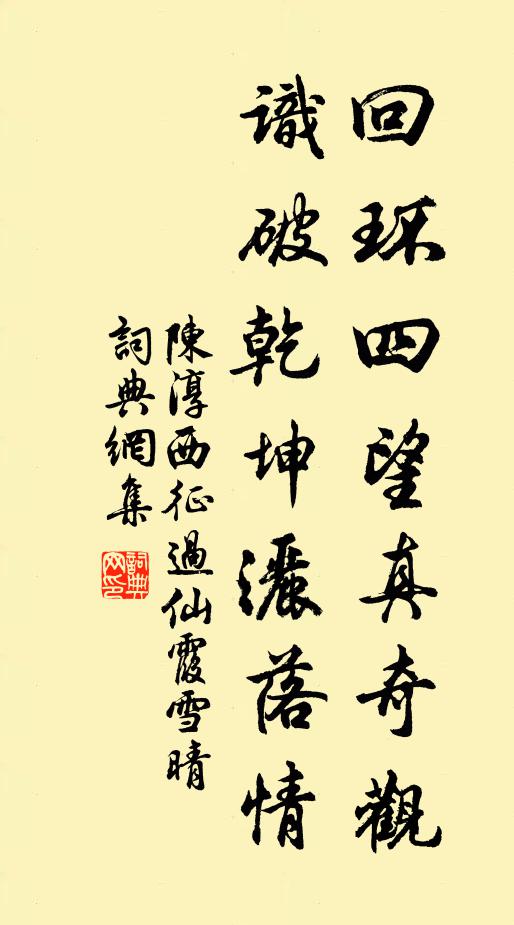 回環四望真奇觀
識破乾坤灑落情
陳淳西征過仙霞雪晴
詞典網集
詞典
网印